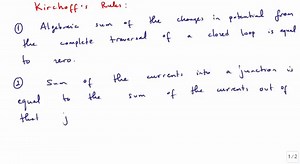 Kirchoff's Rules:
① Algebraic sum of the changes in potential from
the complete traversal of a closed loop is equal
to zero.
② Sum of the currents into a junction is
equal to the sum of the currents out of
that j
1/2